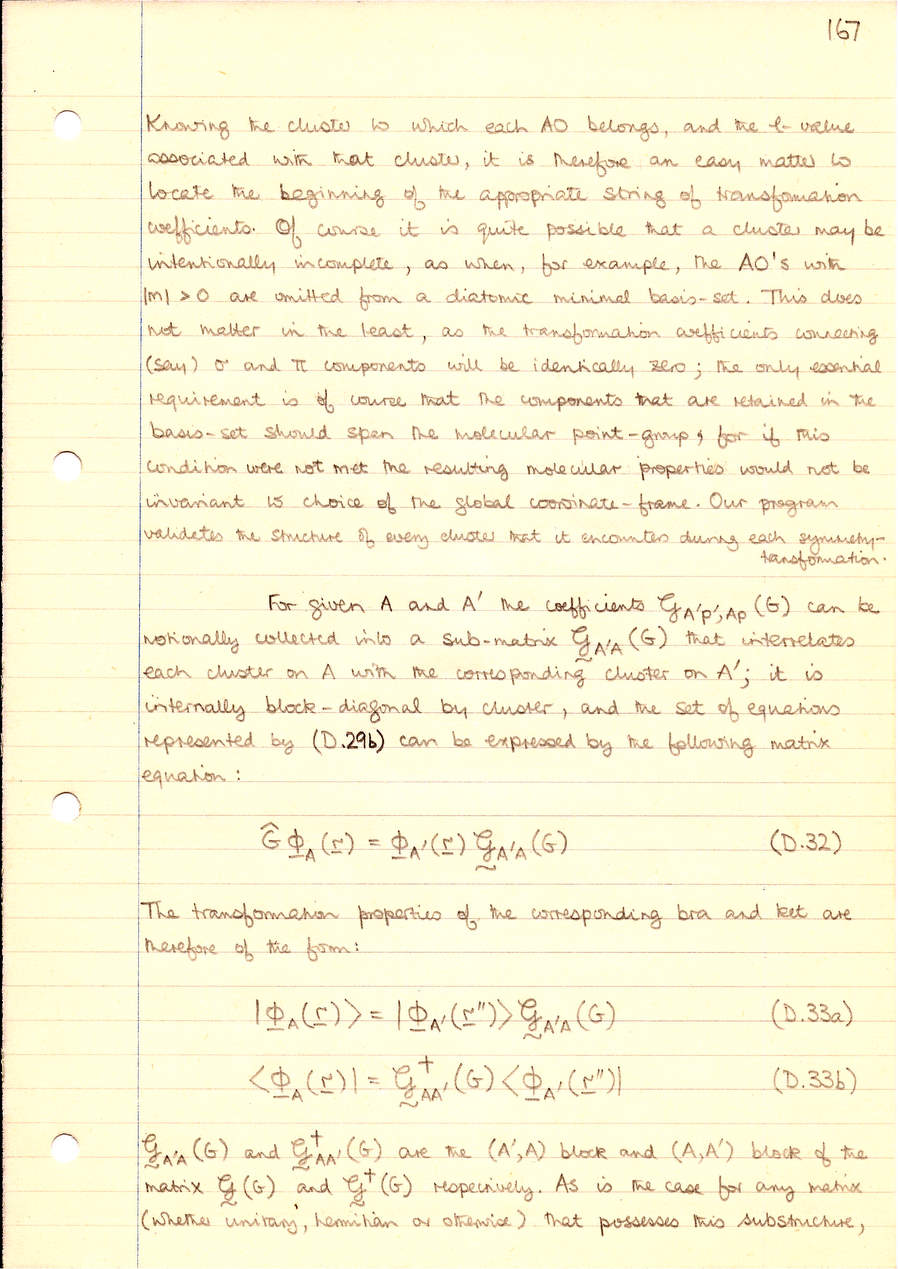 167
Knowing the cluster to which each AO belongs, and the l-value
associated with that cluster, it is therefore an easy matter to
locate the beginning of the appropriate string of transfomation
coefficients. Of course it is quite possible that a cluster may be
intentionally incomplete, as when, for example, the AO's with
|m| > 0 are omitted from a diatomic minimal basis-set. This does
not matter in the least, as the transformation coefficients connecting
(say) σ and π components will be identically zero; the only essential
requirement is of course that the components that are retained in the
basis-set should span the molecular point-group; for if this
condition were not met the resulting molecular properties would not be
invariant to choice of the global coordinate-frame. Our program
validates the structure of every cluster that it encounters during each symmetry-
transformation.
For given A and A′ the coefficients 𝒢A′p′,Ap (G) can be
notionally collected into a sub-matrix 𝒢A′A (G) that interrelates
each cluster on A with the corresponding cluster on A′; it is
internally block-diagonal by cluster, and the set of equations
represented by (D.29b) can be expressed by the following matrix
equation:
Ĝ Φ̲A (r̲) = Φ̲A′ (r̲) 𝒢A′A (G) (D.32)
The transformation properties of the corresponding bra and ket are
therefore of the form:
|Φ̲A (r̲)⟩ = |Φ̲A′ (r̲″)⟩ 𝒢A′A (G) (D.33a)
⟨Φ̲A (r̲)| = 𝒢†AA′ (G) ⟨Φ̲A′ (r̲″)| (D.33b)
𝒢A′A (G) and 𝒢†AA′ (G) are the (A′,A) block and (A,A′) block of the
matrix 𝒢 (G) and 𝒢† (G) respectively. As is the case for any matrix
(whether unitary, hermitian or otherwise) that possesses this substructure,